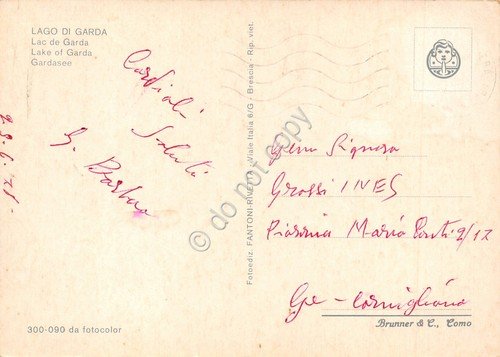 LAGO DI GARDA
Lac de Garda
Lake of Garda
Gardasee
Cordiali
Saluti
G. Barbero
300-090 da fotocolor
Fotoediz. FANTONI-RIVOLTA - Viale Italia 6/G - Brescia - Rip. viet.
© do not copy
Signora
Grossi INES
Piazza Maria Conti 9/12
Ge - Cornigliano
Brunner & C., Como